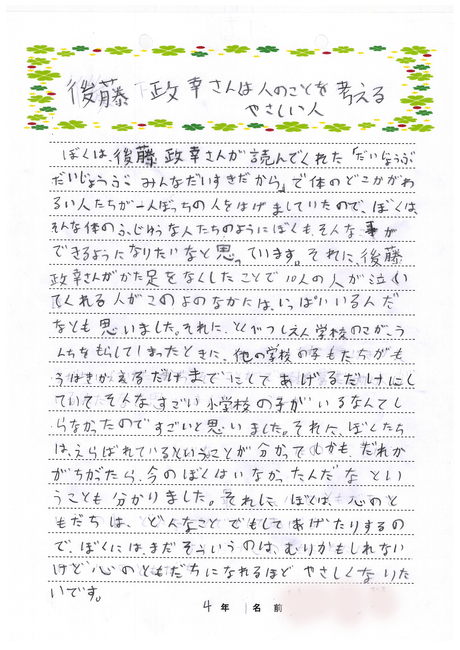 後藤 政幸さんは人のことを考える
やさしい人
ぼくは、後藤政幸さんが読んでくれた「だいじょうぶ
だいじょうぶ みんなだいすきだから」で体のどこかがわ
るい人たちが一人ぼっちの人をはげましていたので、ぼくは、
そんな体のふじゆうな人たちのようにぼくも、そんな事が
できるようになりたいなと思っています。それに、後藤
政幸さんがかた足をなくしたことで10人の人が泣い
てくれる人がこのよのなかには、いっぱいいるんだ
なとも思いました。それに、とくべつしえん学校のこが、う
んちをもらしてしまったときに、他の学校の子もたちがも
うはきかえるだけまでにしてあげるだけにし
ていてそんなすごい小学校の子がいるなんてし
らなかったのですごいと思いました。それに、ぼくたち
は、えらばれているということが分かってしかも、だれか
がちがったら、今のぼくはいなかったんだなとい
うことも分かりました。それに ぼくは、心のと
もだちは、どんなことでもしてあげたりするの
で、ぼくにはまだそういうのは、むりかもしれない
けど心のともだちになれるほどやさしくなりた
いです。
4年 名前